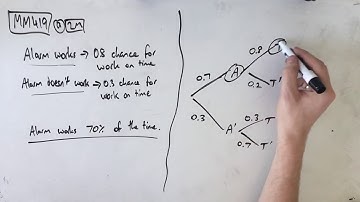 MM419 Q 2M
Alarm works → 0.8 chance for
work on time
Alarm doesn't work → 0.3 chance for
work on time
Alarm works 70% of the time.
0.8
0.7 A
0.2 T'
0.3 A' 0.3 T
0.7 T'